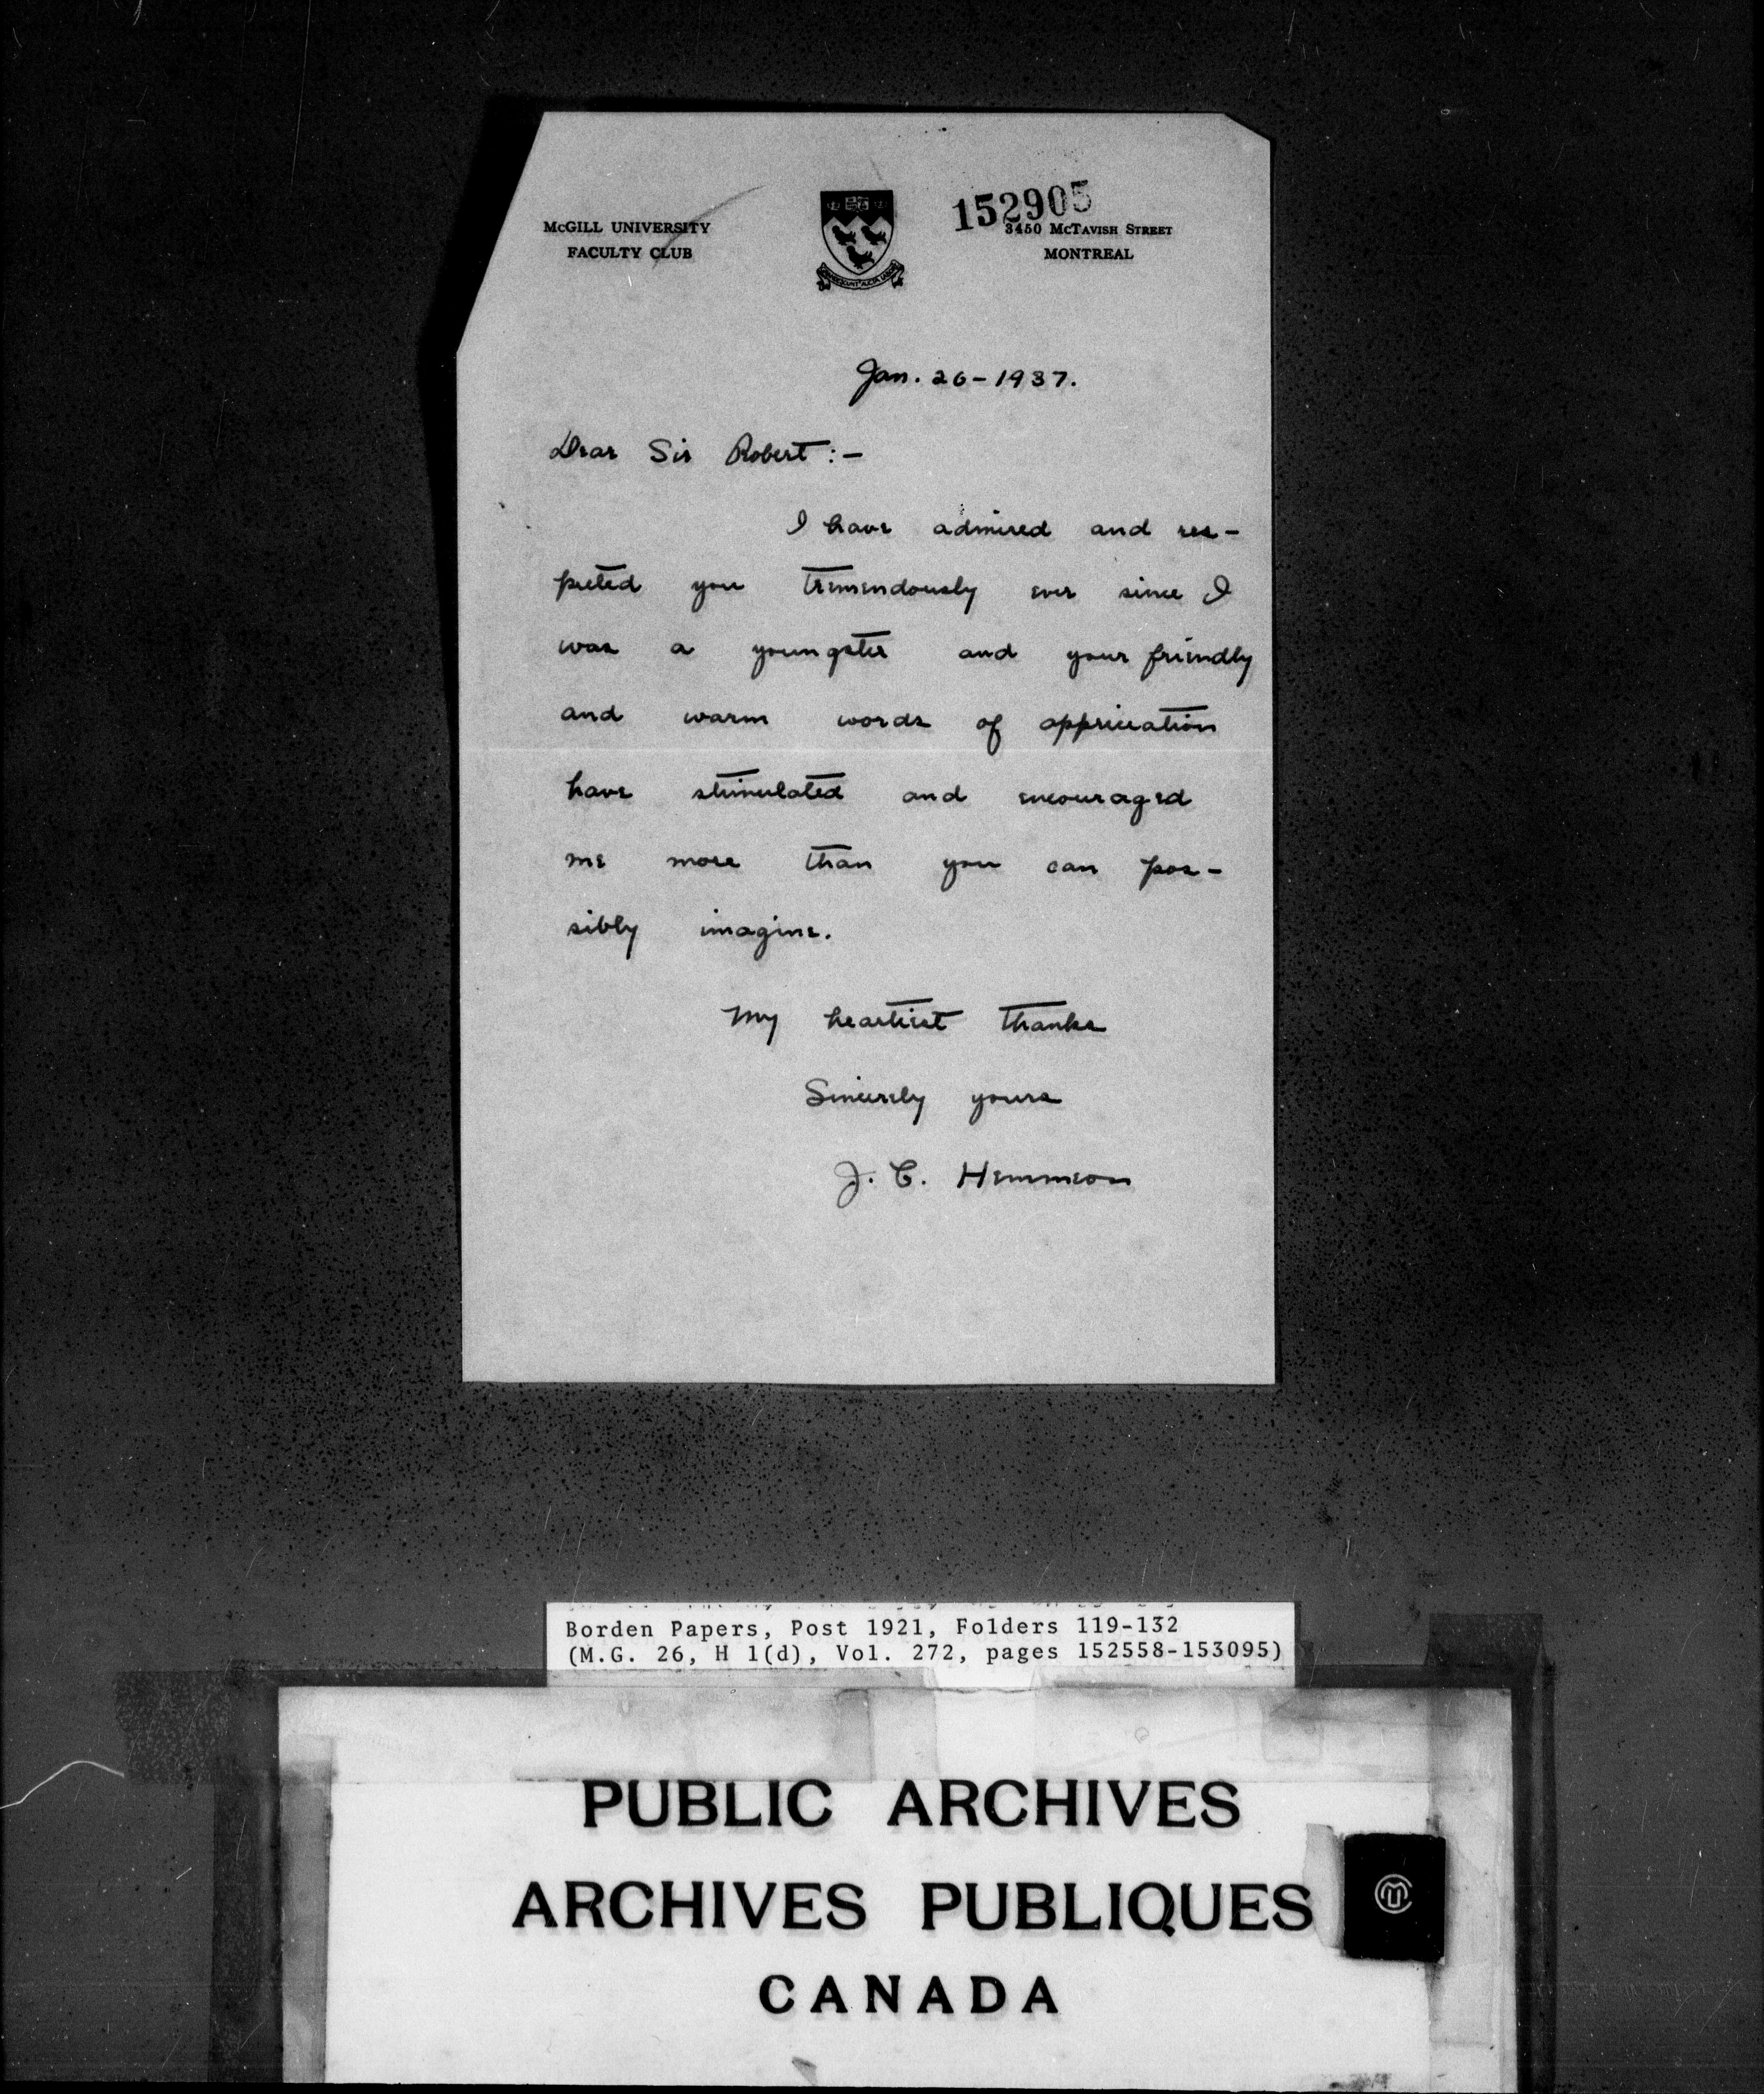 152905
McGILL UNIVERSITY
FACULTY CLUB
3450 McTAVISH STREET
MONTREAL
Jan. 26-1937.
Dear Sir Robert:-
I have admired and res-
pected you tremendously ever since I
was a youngster and your friendly
and warm words of appreciation
have stimulated and encouraged
me more than you can pos-
sibly imagine.
My heartiest thanks
Sincerely yours
J. C. Hemmeon
Borden Papers, Post 1921, Folders 119-132
(M.G. 26, H 1(d), Vol. 272, pages 152558-153095)
PUBLIC ARCHIVES
ARCHIVES PUBLIQUES
CANADA